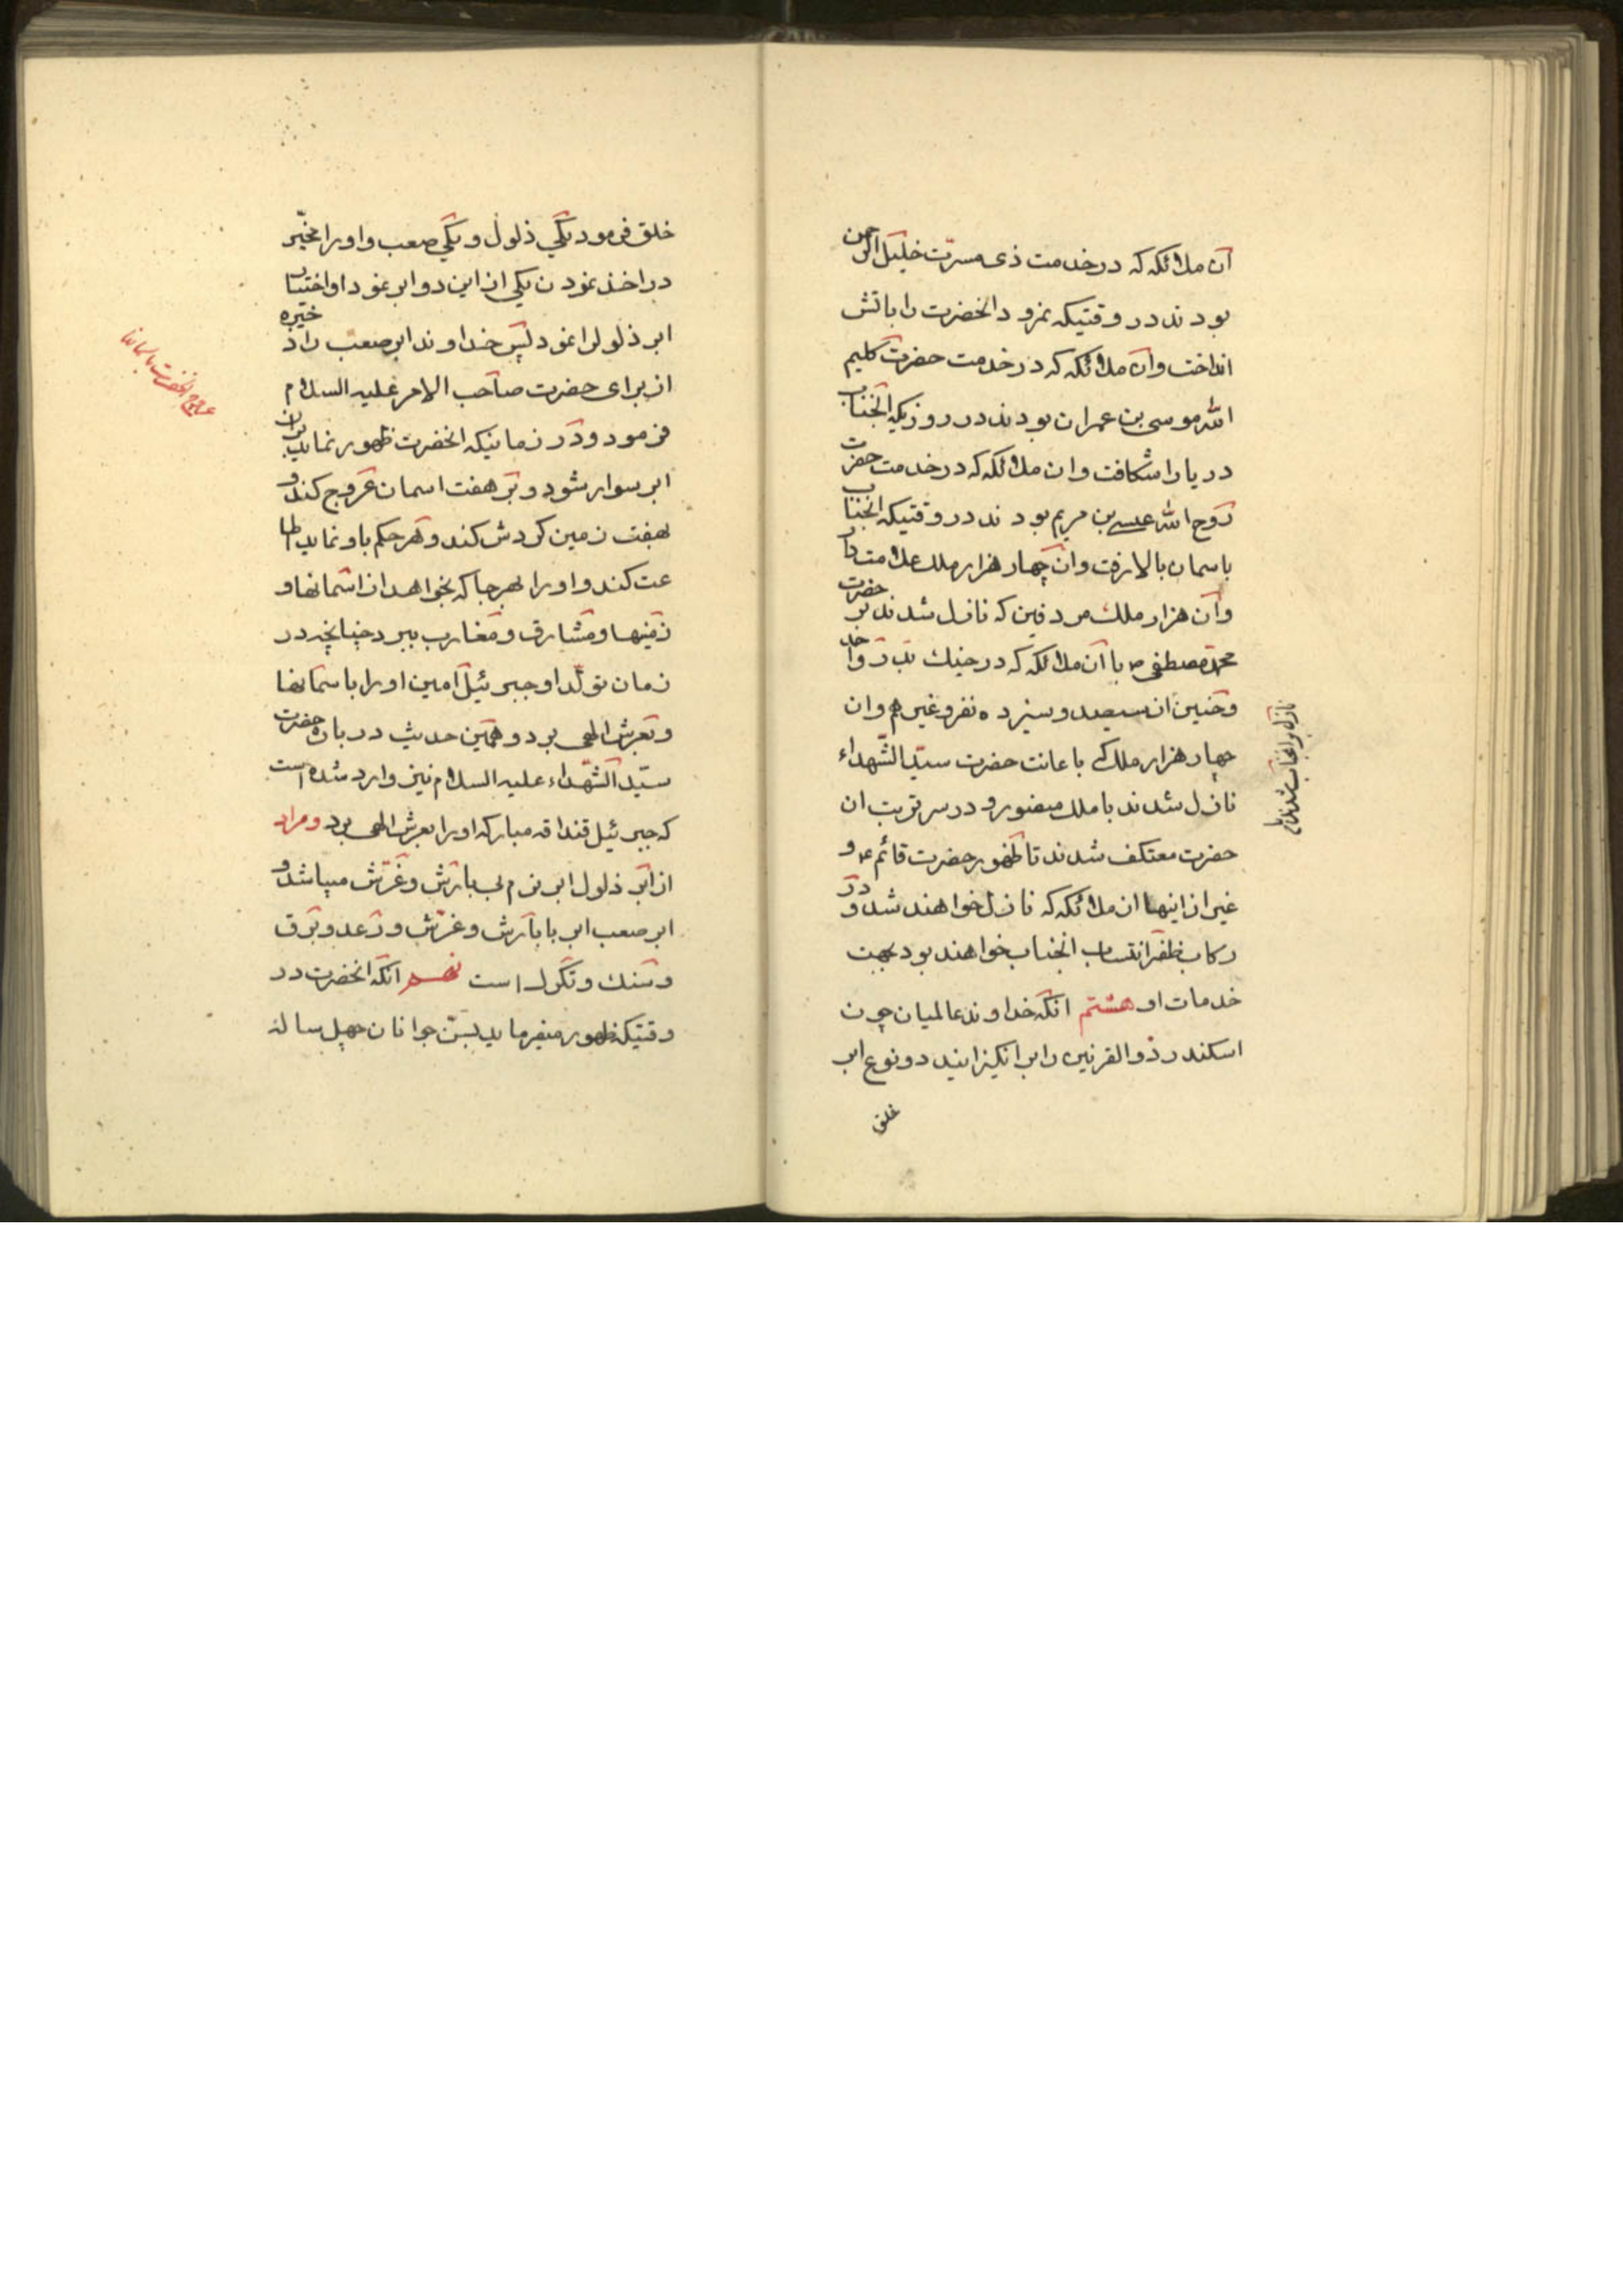 آن ملائکه که در خدمت ذی مسرّت خلیل الرحمن
بودند در وقتیکه نمرود انحضرت را باتش
انداخت وآن ملائکه که در خدمت حضرت کلیم
الله موسی بن عمران بودند در روزیکه آنجناب
دریا را شکافت وان ملائکه که در خدمت حضرت
روح الله عیسی بن مریم بودند در وقتیکه انجناب
باسمان بالا رفت وان چهار هزار ملك علامت دار
وآن هزار ملك مردفین که نازل شدند بر حضرت
محمد مصطفی ص با آن ملائکه که در جنك بدر واحد
وحنین ان سیصد وسیزده نفر وغیرهم وان
چهار هزار ملك که باعانت حضرت سیّد الشّهداء
نازل شدند با ملك منصور ودر سر تربت ان
حضرت معتکف شدند تا ظهور حضرت قائم ع و
غیر از اینها ان ملائکه که نازل خواهند شد و در
رکاب ظفر انتساب انجناب خواهند بود بجهت
خدمات او هشتم انکه خداوند عالمیان چون
اسکندر ذو القرنین را بر انکیزانید دو نوع ابر
خلق
خلق فرمود یکی ذلول ویکی صعب واو را مخیّر
در اخذ نمودن یکی از این دو ابر نمود او اختیار
ابر ذلول را نمود پس خداوند ابر صعب را ذخیره
از برای حضرت صاحب الامر علیه السلام
فرمود ودر زمانیکه انحضرت ظهور نماید بران
ابر سوار شود وبر هفت اسمان عروج کند و
بهفت زمین کردش کند وهر حکم باو نماید اطا
عت کند واو را بهر جا که بخواهد از اسمانها و
زمینها ومشارق ومغارب ببرد چنانچه در
زمان تولّد او جبرئیل امین او را باسمانها
وبعرش الهی برد وهمین حدیث در باره حضرت
سیّد الشّهداء علیه السلام نیز وارد شده است
که جبرئیل قنداقه مبارکه او را بعرش الهی برد ومراد
از ابر ذلول ابر نرم بی بارش وغرّش میباشد و
ابر صعب ابر با بارش وغرّش ورعد وبرق
وسنك وتکرك است نهم انکه انحضرت در
وقتیکه ظهور میفرماید بسنّ جوانان چهل ساله
عروج انحضرت باسمانها